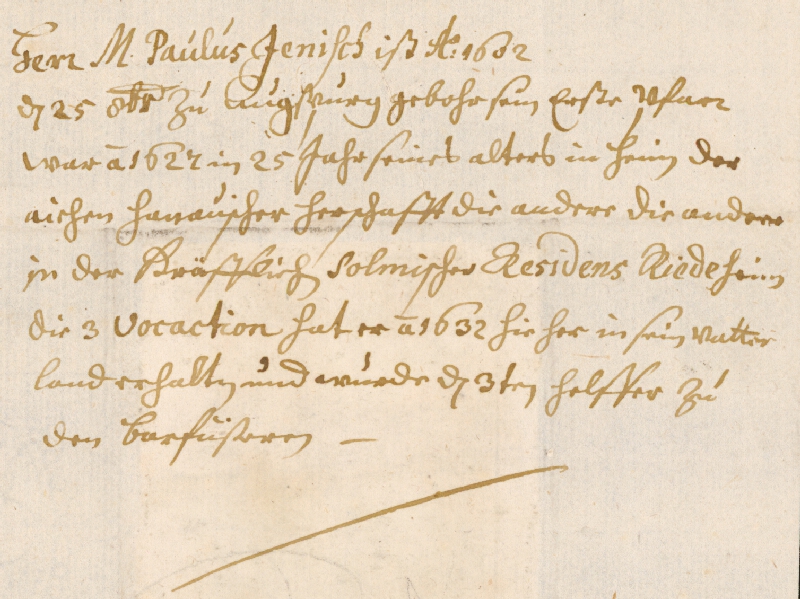 Herr M. Paulus Jenisch ist Ao. 1602
dn 25 8br zu Augspurg gebohr sein Erste Pfarr
war ā 1627 in 25 Jahr seines alters in heim der
aichen hanauischer herschafft die andere die andere
in der Gräfflich Solmischer Residens Rödeheim
die 3 Vocaction hat er ā 1632 hieher in sein Vatter
land erhaltn und wurde dn 3ten helffer zu
den barfüßeren —